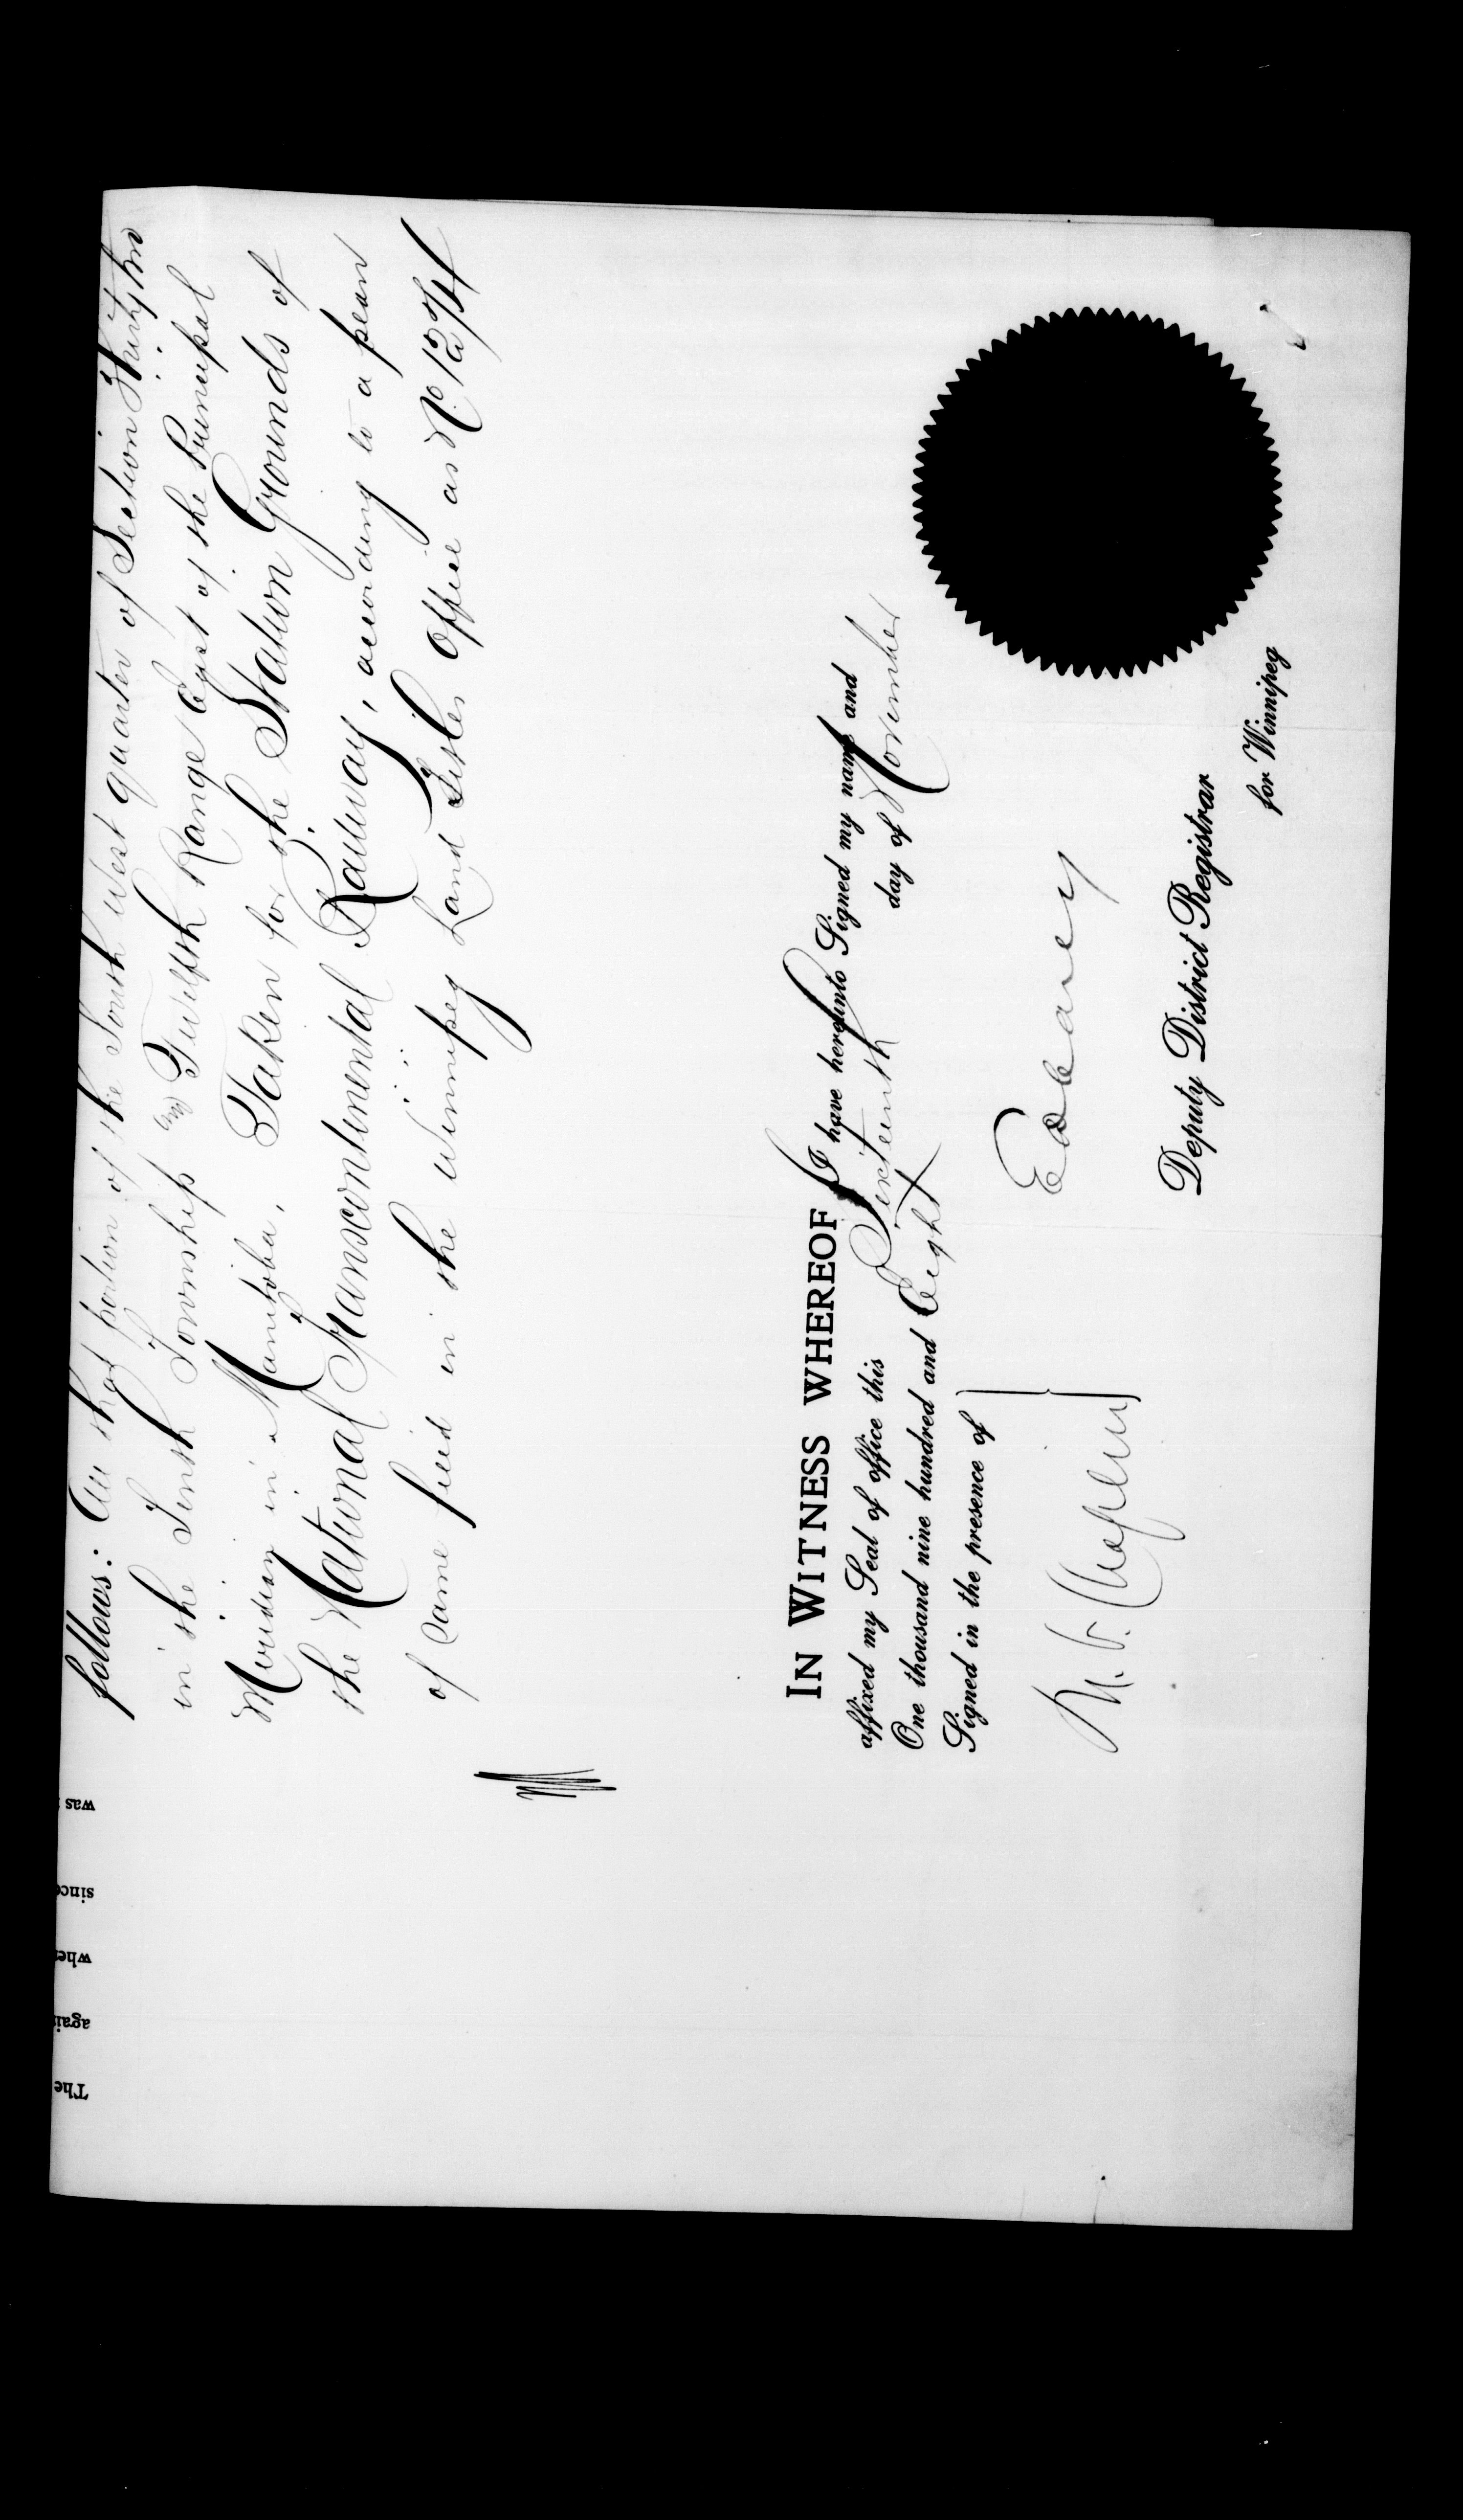 follows: All that portion of the South West quarter of Section Thirty two
in the Tenth Township in Twelfth Range East of the Principal
Meridian in Manitoba, Taken for the Station Grounds of
the National Transcontinental Railway, according to a plan
of same filed in the Winnipeg Land Titles Office as No 1274
IN WITNESS WHEREOF I have hereunto Signed my name and
affixed my Seal of office this Sixteenth day of November
One thousand nine hundred and Eight
Signed in the presence of
Deputy District Registrar
for Winnipeg
was
sinc
whe
agai
The